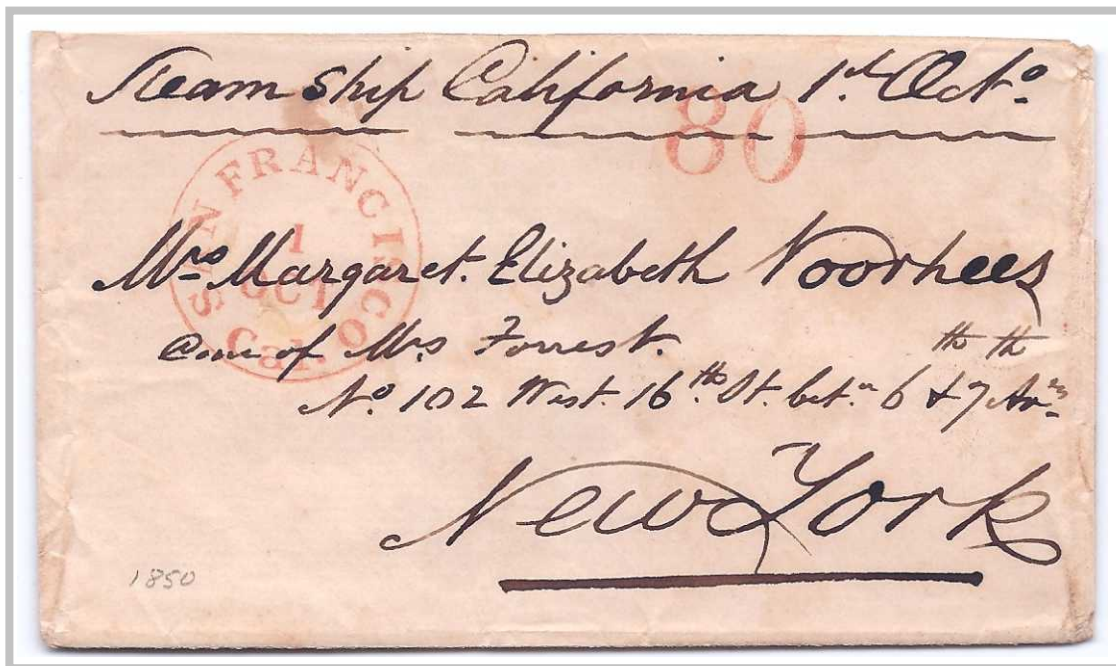 Steam Ship California 1st Octo.
80
SAN FRANCISCO
1
OCT
Cal.
Mrs Margaret. Elizabeth Voorhees
Care of Mrs Forrest.
No. 102 West. 16th. St. betn. 6th & 7th Avs
New York
1850